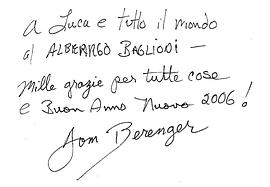 A Luca e tutto il mondo
al ALBERRGO BAGLIODI —
Mille grazie per tutte cose
e Buon Anno Nuovo 2006!
Tom Berenger